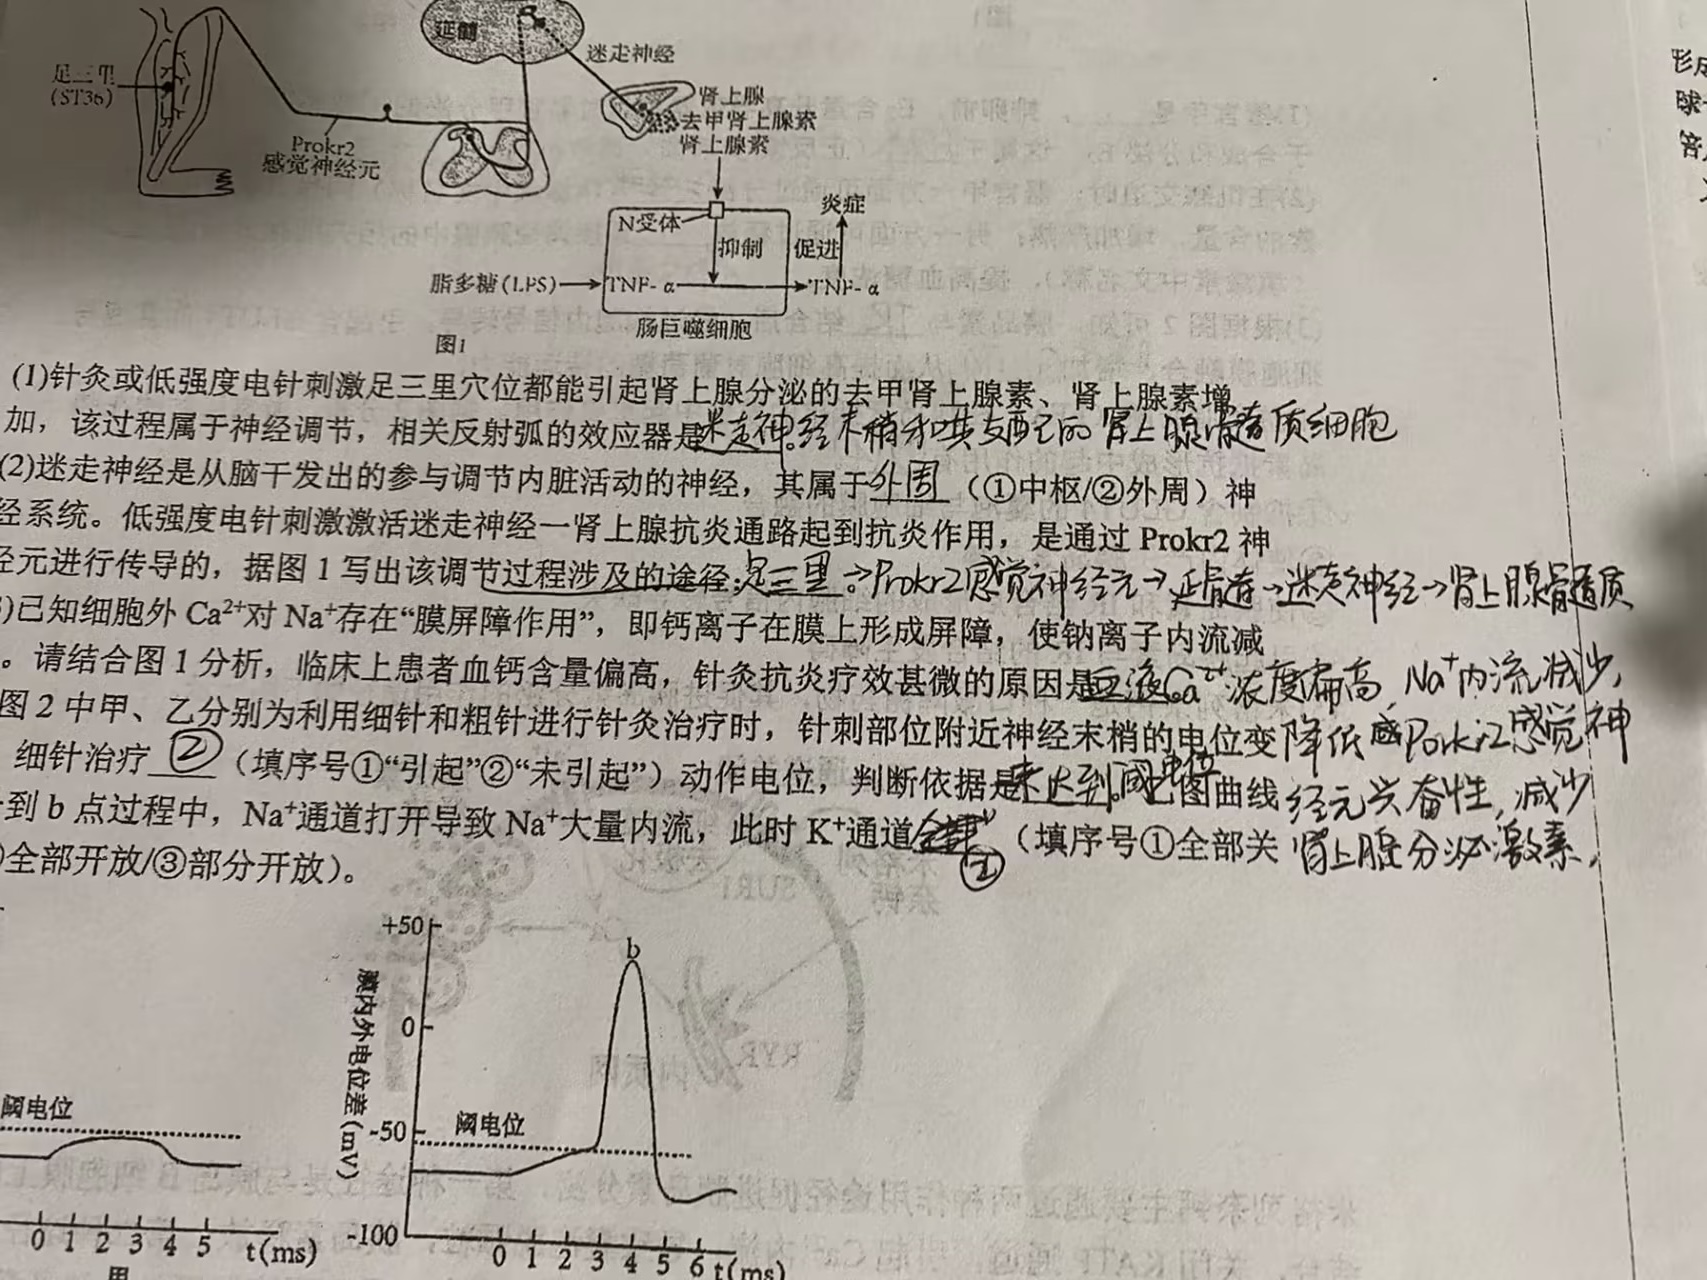 延髓
迷走神经
足三里
(ST36)
肾上腺
去甲肾上腺素
肾上腺素
Prokr2
感觉神经元
N受体
炎症
抑制
促进
脂多糖(LPS)
TNF-α
TNF-α
肠巨噬细胞
图1
(1)针灸或低强度电针刺激足三里穴位都能引起肾上腺分泌的去甲肾上腺素、肾上腺素增
加，该过程属于神经调节，相关反射弧的效应器是迷走神经末梢和其支配的肾上腺髓质细胞。
(2)迷走神经是从脑干发出的参与调节内脏活动的神经，其属于外周（①中枢/②外周）神
经系统。低强度电针刺激激活迷走神经一肾上腺抗炎通路起到抗炎作用，是通过 Prokr2 神
经元进行传导的，据图 1 写出该调节过程涉及的途径:足三里→Prokr2感觉神经元→延髓→迷走神经→肾上腺髓质。
)已知细胞外 Ca²⁺对 Na⁺存在“膜屏障作用”，即钙离子在膜上形成屏障，使钠离子内流减
。请结合图 1 分析，临床上患者血钙含量偏高，针灸抗炎疗效甚微的原因是血液Ca²⁺浓度偏高，Na⁺内流减少，
降低感Porkr2感觉神
经元兴奋性，减少
肾上腺分泌激素。
图 2 中甲、乙分别为利用细针和粗针进行针灸治疗时，针刺部位附近神经末梢的电位变
细针治疗②（填序号①“引起”②“未引起”）动作电位，判断依据是未达到阈电位。乙图曲线
到 b 点过程中，Na⁺通道打开导致 Na⁺大量内流，此时 K⁺通道（填序号①全部关
全部开放/③部分开放）。
+50
b
0
膜内外电位差(mV)
阈电位
-50
阈电位
-100
0 1 2 3 4 5 t(ms)
0 1 2 3 4 5 6 t(ms)
甲